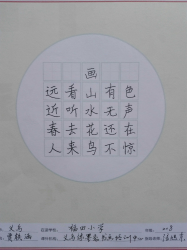 画
远看山有色
近听水无声
春去花还在
人来鸟不惊
义乌
福田小学